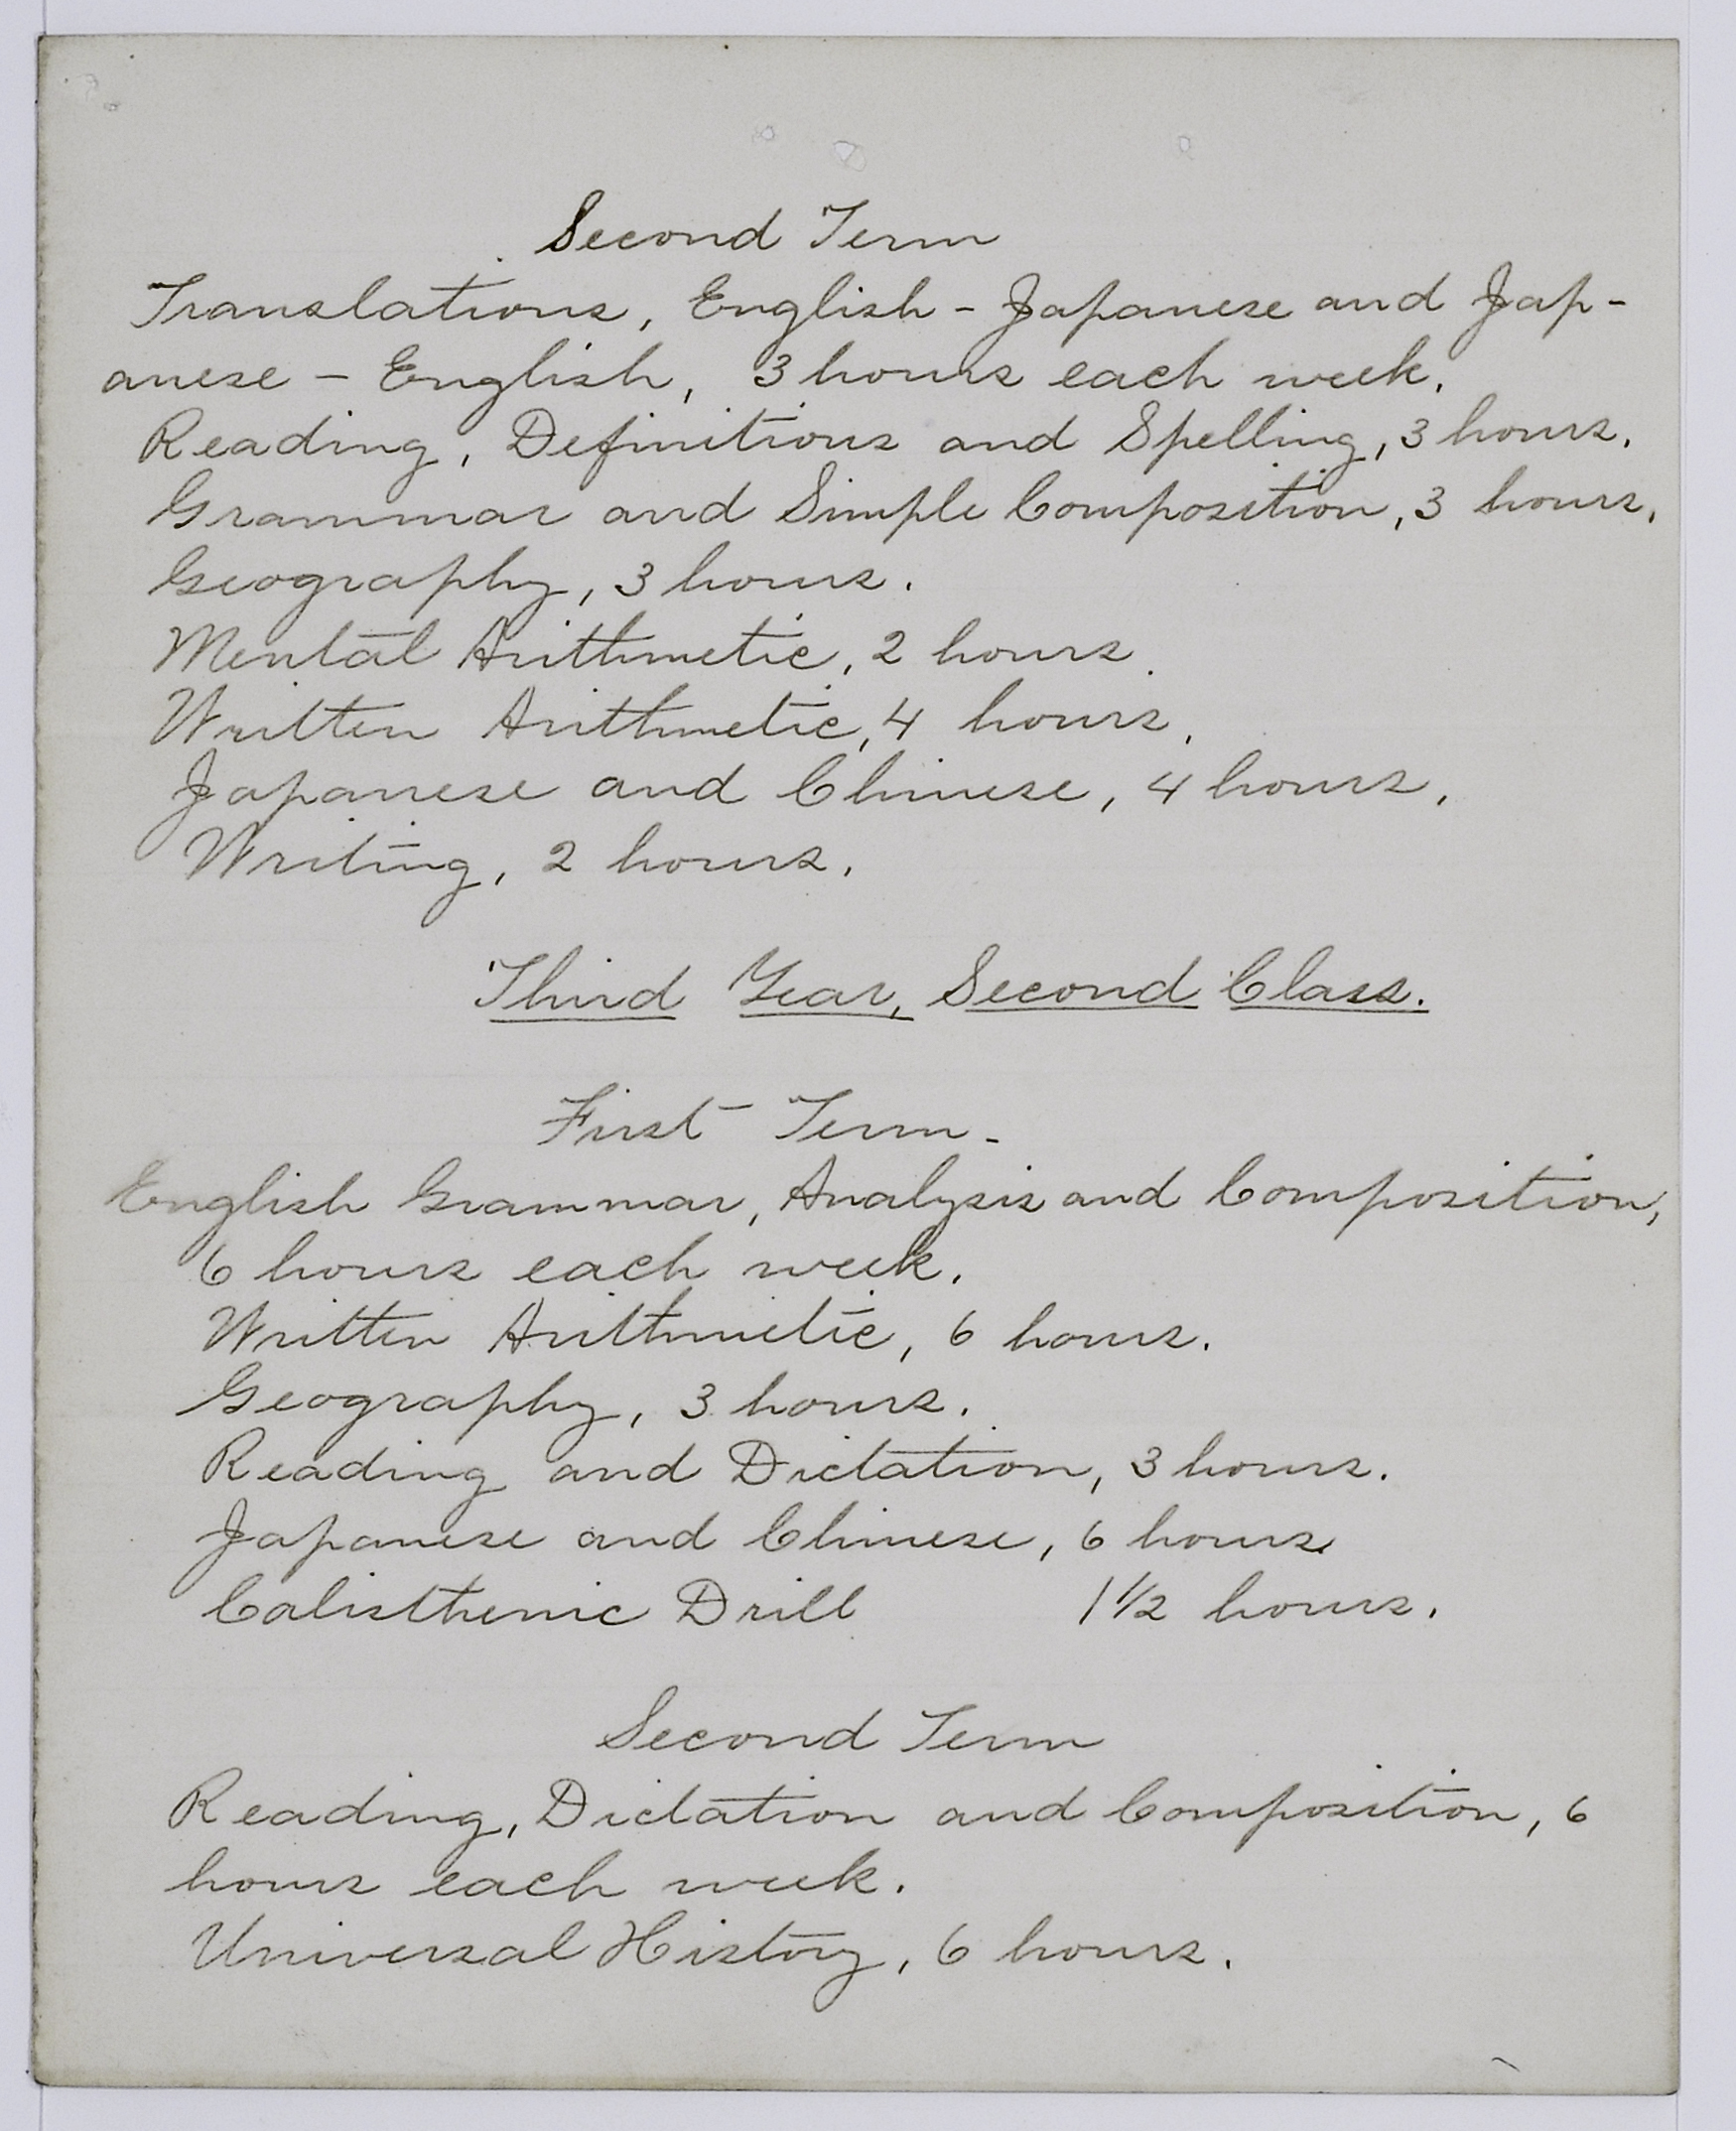 Second Term
Translations, English - Japanese and Jap-
anese - English, 3 hours each week.
Reading, Definitions and Spelling, 3 hours.
Grammar and Simple Composition, 3 hours.
Geography, 3 hours.
Mental Arithmetic, 2 hours.
Written Arithmetic, 4 hours.
Japanese and Chinese, 4 hours.
Writing, 2 hours.
Third Year, Second Class.
First Term.
English Grammar, Analysis and Composition,
6 hours each week.
Written Arithmetic, 6 hours.
Geography, 3 hours.
Reading and Dictation, 3 hours.
Japanese and Chinese, 6 hours.
Calisthenic Drill 1 1/2 hours.
Second Term
Reading, Dictation and Composition, 6
hours each week.
Universal History, 6 hours.